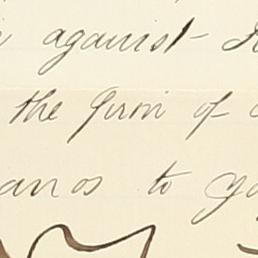 against
the Firm of
anos to